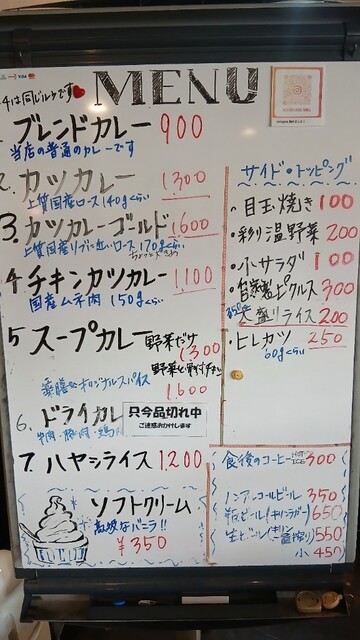 MENU
4は同じルウです
1. ブレンドカレー 900
当店の普通のカレーです
2. カツカレー 1300
上質国産ロース140gくらい
3. カツカレーゴールド 1600
上質国産リブに近いロース170gくらい
4. チキンカツカレー 1100
国産ムネ肉 150gくらい
5 スープカレー 野菜だけ 1300
1600
薬膳なオリジナルスパイス
6. ドライカレ
只今品切れ中
ご迷惑おかけします
7. ハヤシライス 1,200
ソフトクリーム
高級なバニラ!!
¥350
サイド・トッピング
・目玉焼き 100
・彩り温野菜 200
・小サラダ 100
・自家製ピクルス 300
大盛りライス 200
・ヒレカツ 250
60gくらい
食後のコーヒー HOT ICE 300
ノンアルコールビール 350
瓶ビール(キリンラガー) 650
生ビール(キリン一番搾り) 550
小 450